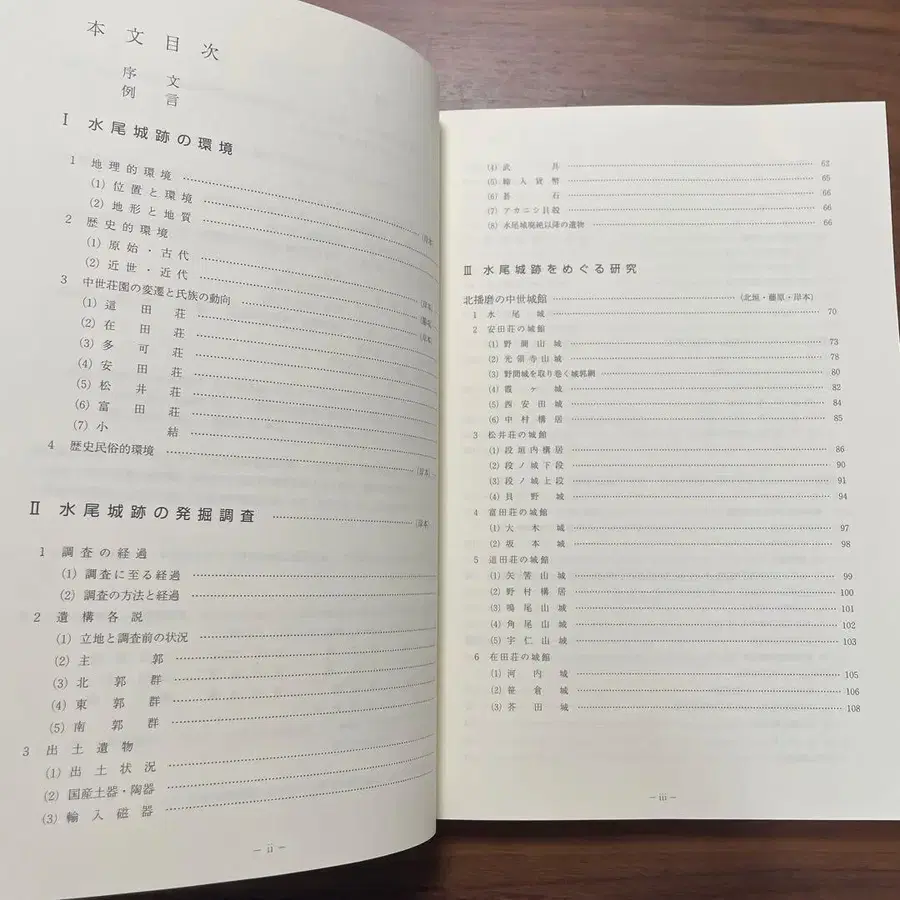 本文目次
序文
例言
Ⅰ 水尾城跡の環境
1 地理的環境
(1) 位置と環境
(2) 地形と地質 (岸本)
2 歴史的環境
(1) 原始・古代
(2) 近世・近代
3 中世荘園の変遷と氏族の動向
(1) 這田荘
(2) 在田荘 (岸本)
(3) 多可荘
(4) 安田荘
(5) 松井荘
(6) 富田荘
(7) 小結
4 歴史民俗的環境 (岸本)
Ⅱ 水尾城跡の発掘調査 (岸本)
1 調査の経過
(1) 調査に至る経過
(2) 調査の方法と経過
2 遺構各説
(1) 立地と調査前の状況
(2) 主郭
(3) 北郭群
(4) 東郭群
(5) 南郭群
3 出土遺物
(1) 出土状況
(2) 国産土器・陶器
(3) 輸入磁器
— ii —
(4) 武具 63
(5) 輸入貨幣 65
(6) 碁石 66
(7) アカニシ貝殻 66
(8) 水尾城廃絶以降の遺物 66
Ⅲ 水尾城跡をめぐる研究
北播磨の中世城館 (北垣・藤原・岸本)
1 水尾城 70
2 安田荘の城館
(1) 野間山城 73
(2) 光領寺山城 78
(3) 野間城を取り巻く城郭網 80
(4) 霞ヶ城 82
(5) 西安田城 84
(6) 中村構居 85
3 松井荘の城館
(1) 段垣内構居 86
(2) 段ノ城下段 90
(3) 段ノ城上段 91
(4) 貝野城 94
4 富田荘の城館
(1) 大木城 97
(2) 坂本城 98
5 這田荘の城館
(1) 矢筈山城 99
(2) 野村構居 100
(3) 鳴尾山城 101
(4) 角尾山城 102
(5) 宇仁山城 103
6 在田荘の城館
(1) 河内城 105
(2) 笹倉城 106
(3) 芥田城 108
— iii —